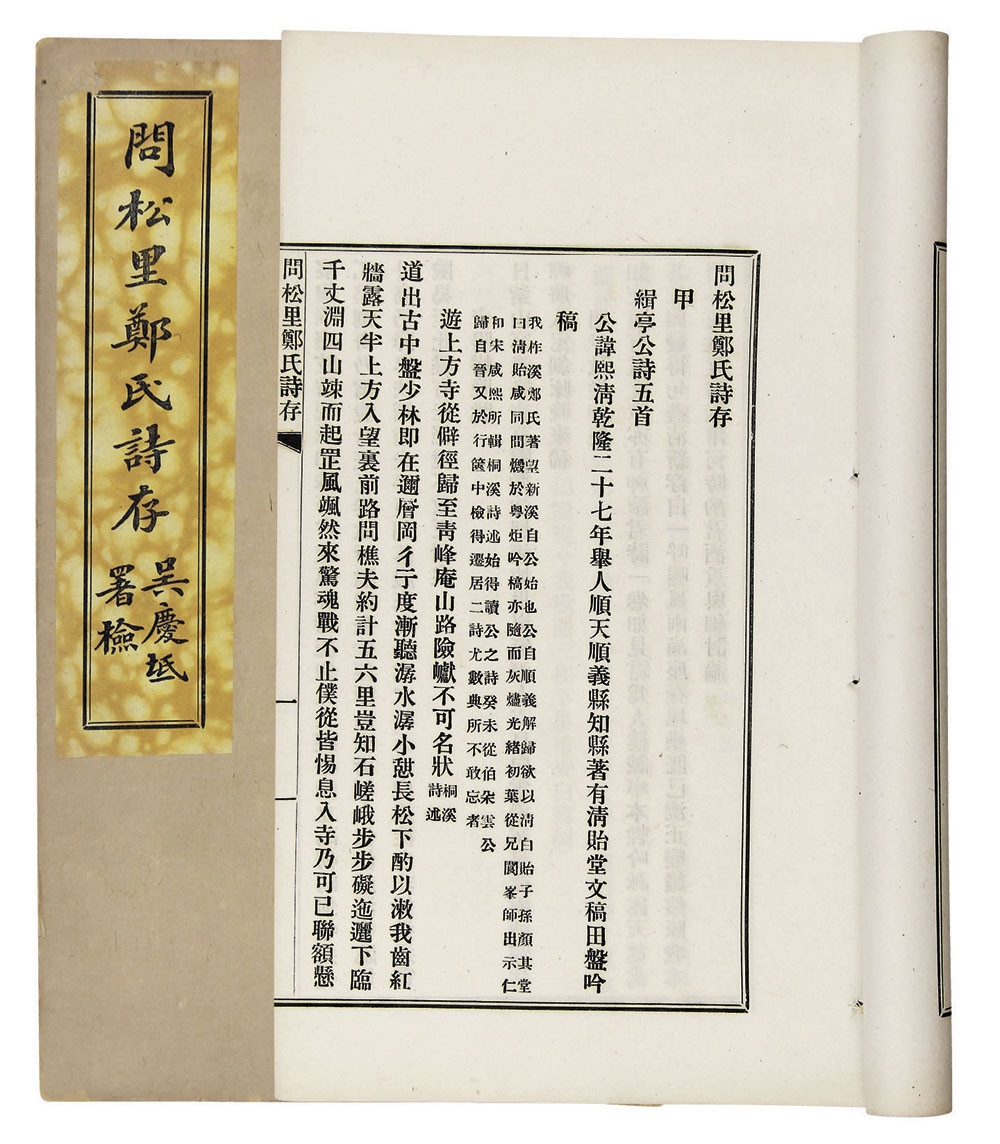 問松里鄭氏詩存
吳慶坻
署檢
問松里鄭氏詩存
甲
緝亭公詩五首
公諱熙清乾隆二十七年舉人順天順義縣知縣著有清貽堂文稿田盤吟
稿
我柞溪鄭氏著望新溪自公始也公自順義解歸欲以清白貽子孫顏其堂
曰清貽咸同間燬於粵炬吟稿亦隨而灰燼光緒初葉從兄閬峯師出示仁
和宋咸熙所輯桐溪詩述始得讀公之詩癸未從伯朵雲公
歸自晉又於行篋中檢得遷居二詩尤數典所不敢忘者
遊上方寺從僻徑歸至青峰庵山路險巇不可名狀桐溪詩述
道出古中盤少林即在邇層岡彳亍度漸聽潺水潺小憩長松下酌以漱我齒紅
牆露天半上方入望裏前路問樵夫約計五六里豈知石嵯峨步步礙迤邐下臨
千丈淵四山竦而起罡風颯然來驚魂戰不止僕從皆惕息入寺乃可已聯額懸
問松里鄭氏詩存
一